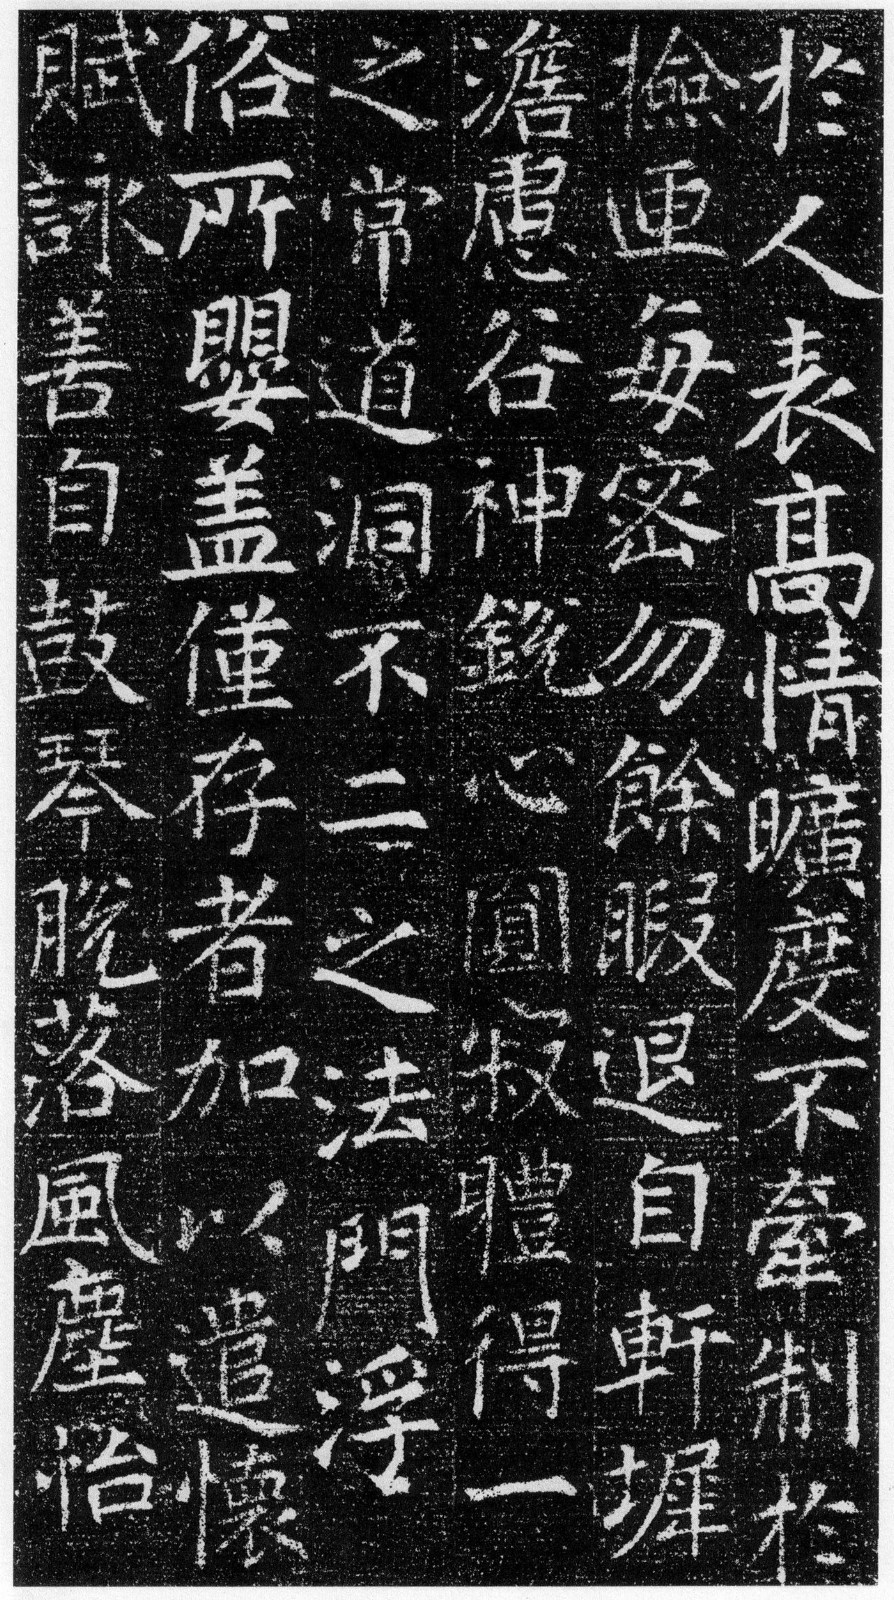 於人表高情曠度不牽制於
撿匣每密勿餘暇退自軒墀
澹慮谷神銳心圓寂體得一
之常道洞不二之法門浮
俗所嬰盖僅存者加以遣懷
賦詠善自鼓琴脫落風塵怡